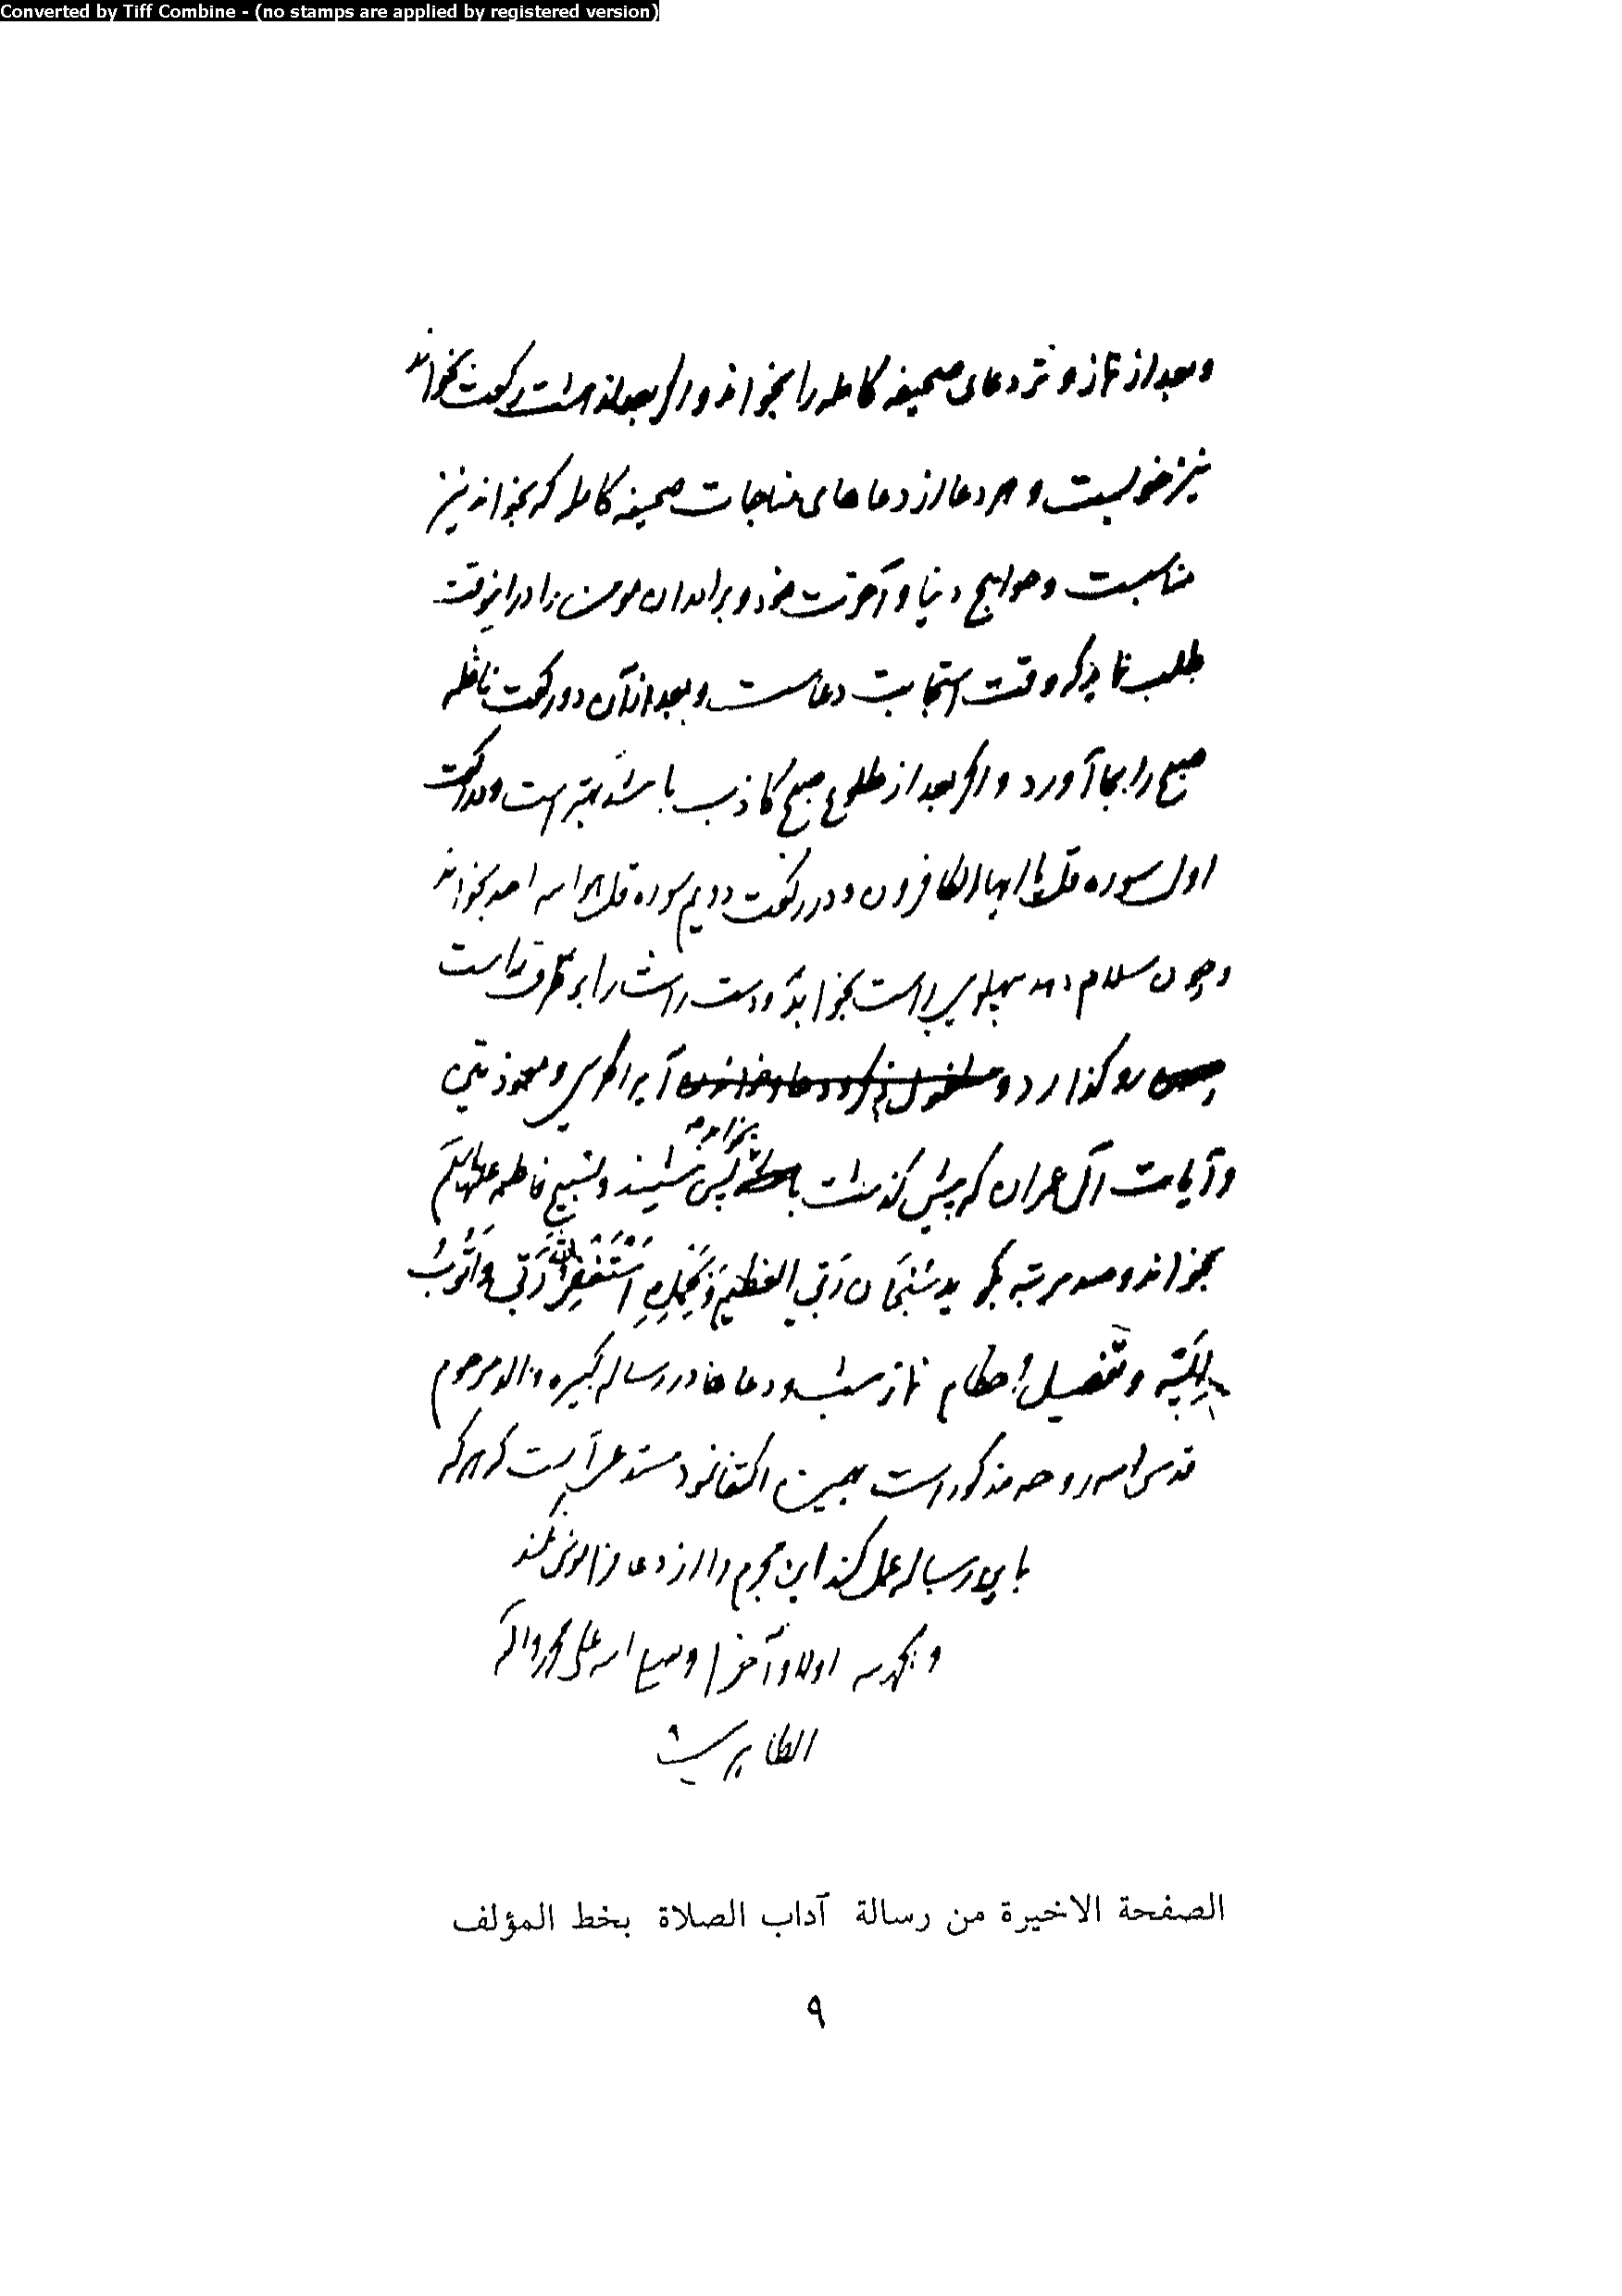 Converted by Tiff Combine - (no stamps are applied by registered version)
و بعد از نماز وتر دعای صحیفه کامله را بخواند و اگر بعد از هشت رکعت بخواند
نیز خوبست و هر دعا از دعاهای مناجات صحیفه کامله که بخواند نیز
مناسبت و حوایج دنیا و آخرت خود و برادران مومن را در اینوقت
طلب نماید که وقت استجابت دعاست و بعد از آن دو رکعت نافله
صبح را بجا آورد و اگر بعد از طلوع صبح کاذب باشد بهتر است و در رکعت
اول سوره قل یا ایها الکافرون و در رکعت دویم سوره قل هو الله احد بخواند
و چون سلام دهد بپهلوی راست بخوابد و دست راست را بر طرف راست
رو گذارد و مشغول ذکر و دعا و خواندن آیة الکرسی و معوذتین
و آیات آل عمران که پیش گذشت بخواند پس بنشیند و تسبیح فاطمه علیها السلام
بخواند و صد مرتبه بگوید سُبْحَانَ رَبِّيَ العَظِيمِ وَبِحَمْدِهِ اَسْتَغْفِرُ اللهَ رَبِّي وَاَتُوبُ
اِلَيْهِ و تفصیل احکام نماز شب و دعاها در رساله کبیره والد مرحوم
قدس الله روحه مذکور است بهمین اکتفا نمود مستدعی آنست که هر که
باین رساله عمل کند این مجرم را از دعا فراموش نکند
و الحمد لله اولا و آخرا و صلی الله علی محمد و آله
الطاهرین
الصفحة الاخيرة من رسالة آداب الصلاة بخط المؤلف
٩